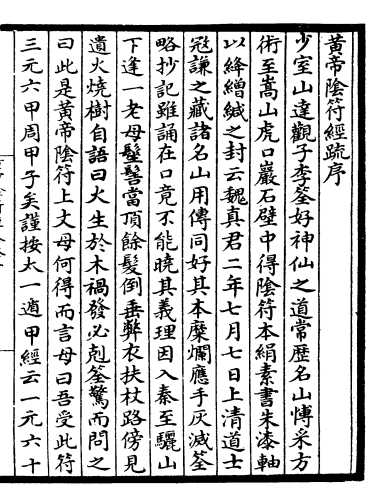 黃帝陰符經疏序
少室山達觀子李筌好神仙之道常歷名山博采方
術至嵩山虎口巖石壁中得陰符本絹素書朱漆軸
以絳繒緘之封云魏真君二年七月七日上清道士
冦謙之藏諸名山用傳同好其本糜爛應手灰滅筌
略抄記雖誦在口竟不能曉其義理因入秦至驪山
下逢一老母髽髻當頂餘髮倒垂弊衣扶杖路傍見
遺火燒樹自語曰火生於木禍發必剋筌驚而問之
曰此是黃帝陰符上文母何得而言母曰吾受此符
三元六甲周甲子矣謹按太一遁甲經云一元六十